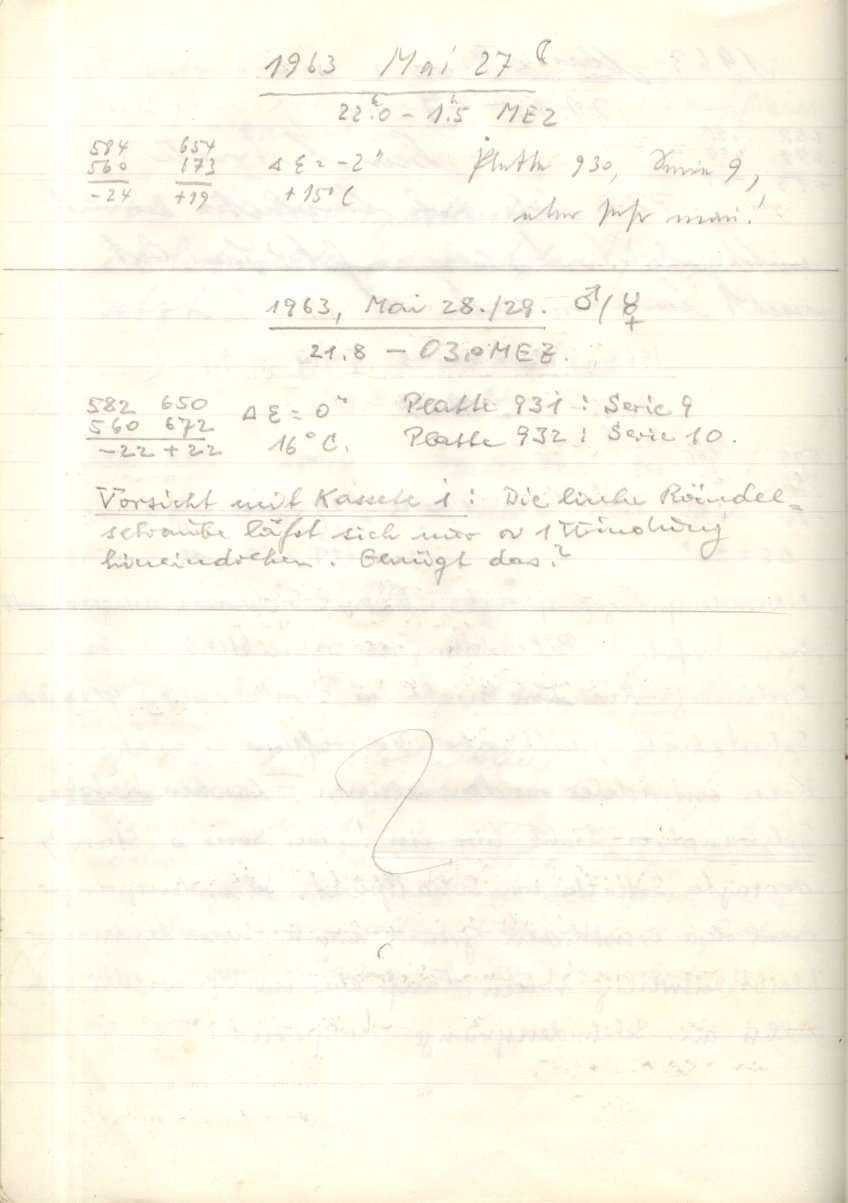 1963 Mai 27 ☾
22ʰ.0 – 1ʰ.5 MEZ
584 654
560 673 Δ ε = -2" Platte 930, Serie 9,
-24 +19 +15° C
aber sehr
1963, Mai 28./29. ♂/☿
21.8 – 03.0 MEZ.
582 650 Δ ε = 0" Platte 931 : Serie 9
560 672 16° C. Platte 932 : Serie 10.
-22 +22
Vorsicht mit Kassete 1 : Die linke Rändel=
schraube läßt sich nur ~ 1 Windung
hineindrehen. Genügt das?
?